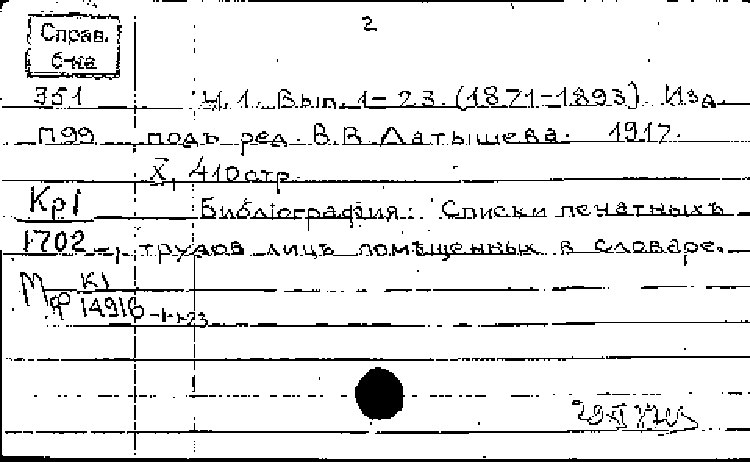 2
Справ.
б-ка
351 Ч.1. Вып. 1-23. (1871-1893). Изд.
П99 подъ ред. В.В. Латышева. 1917.
X, 410 стр.
Кр1 Библіографія: Списки печатныхъ
1702 трудов лицъ помѣщенных в словаре.
Мф К1
14916 -1-23